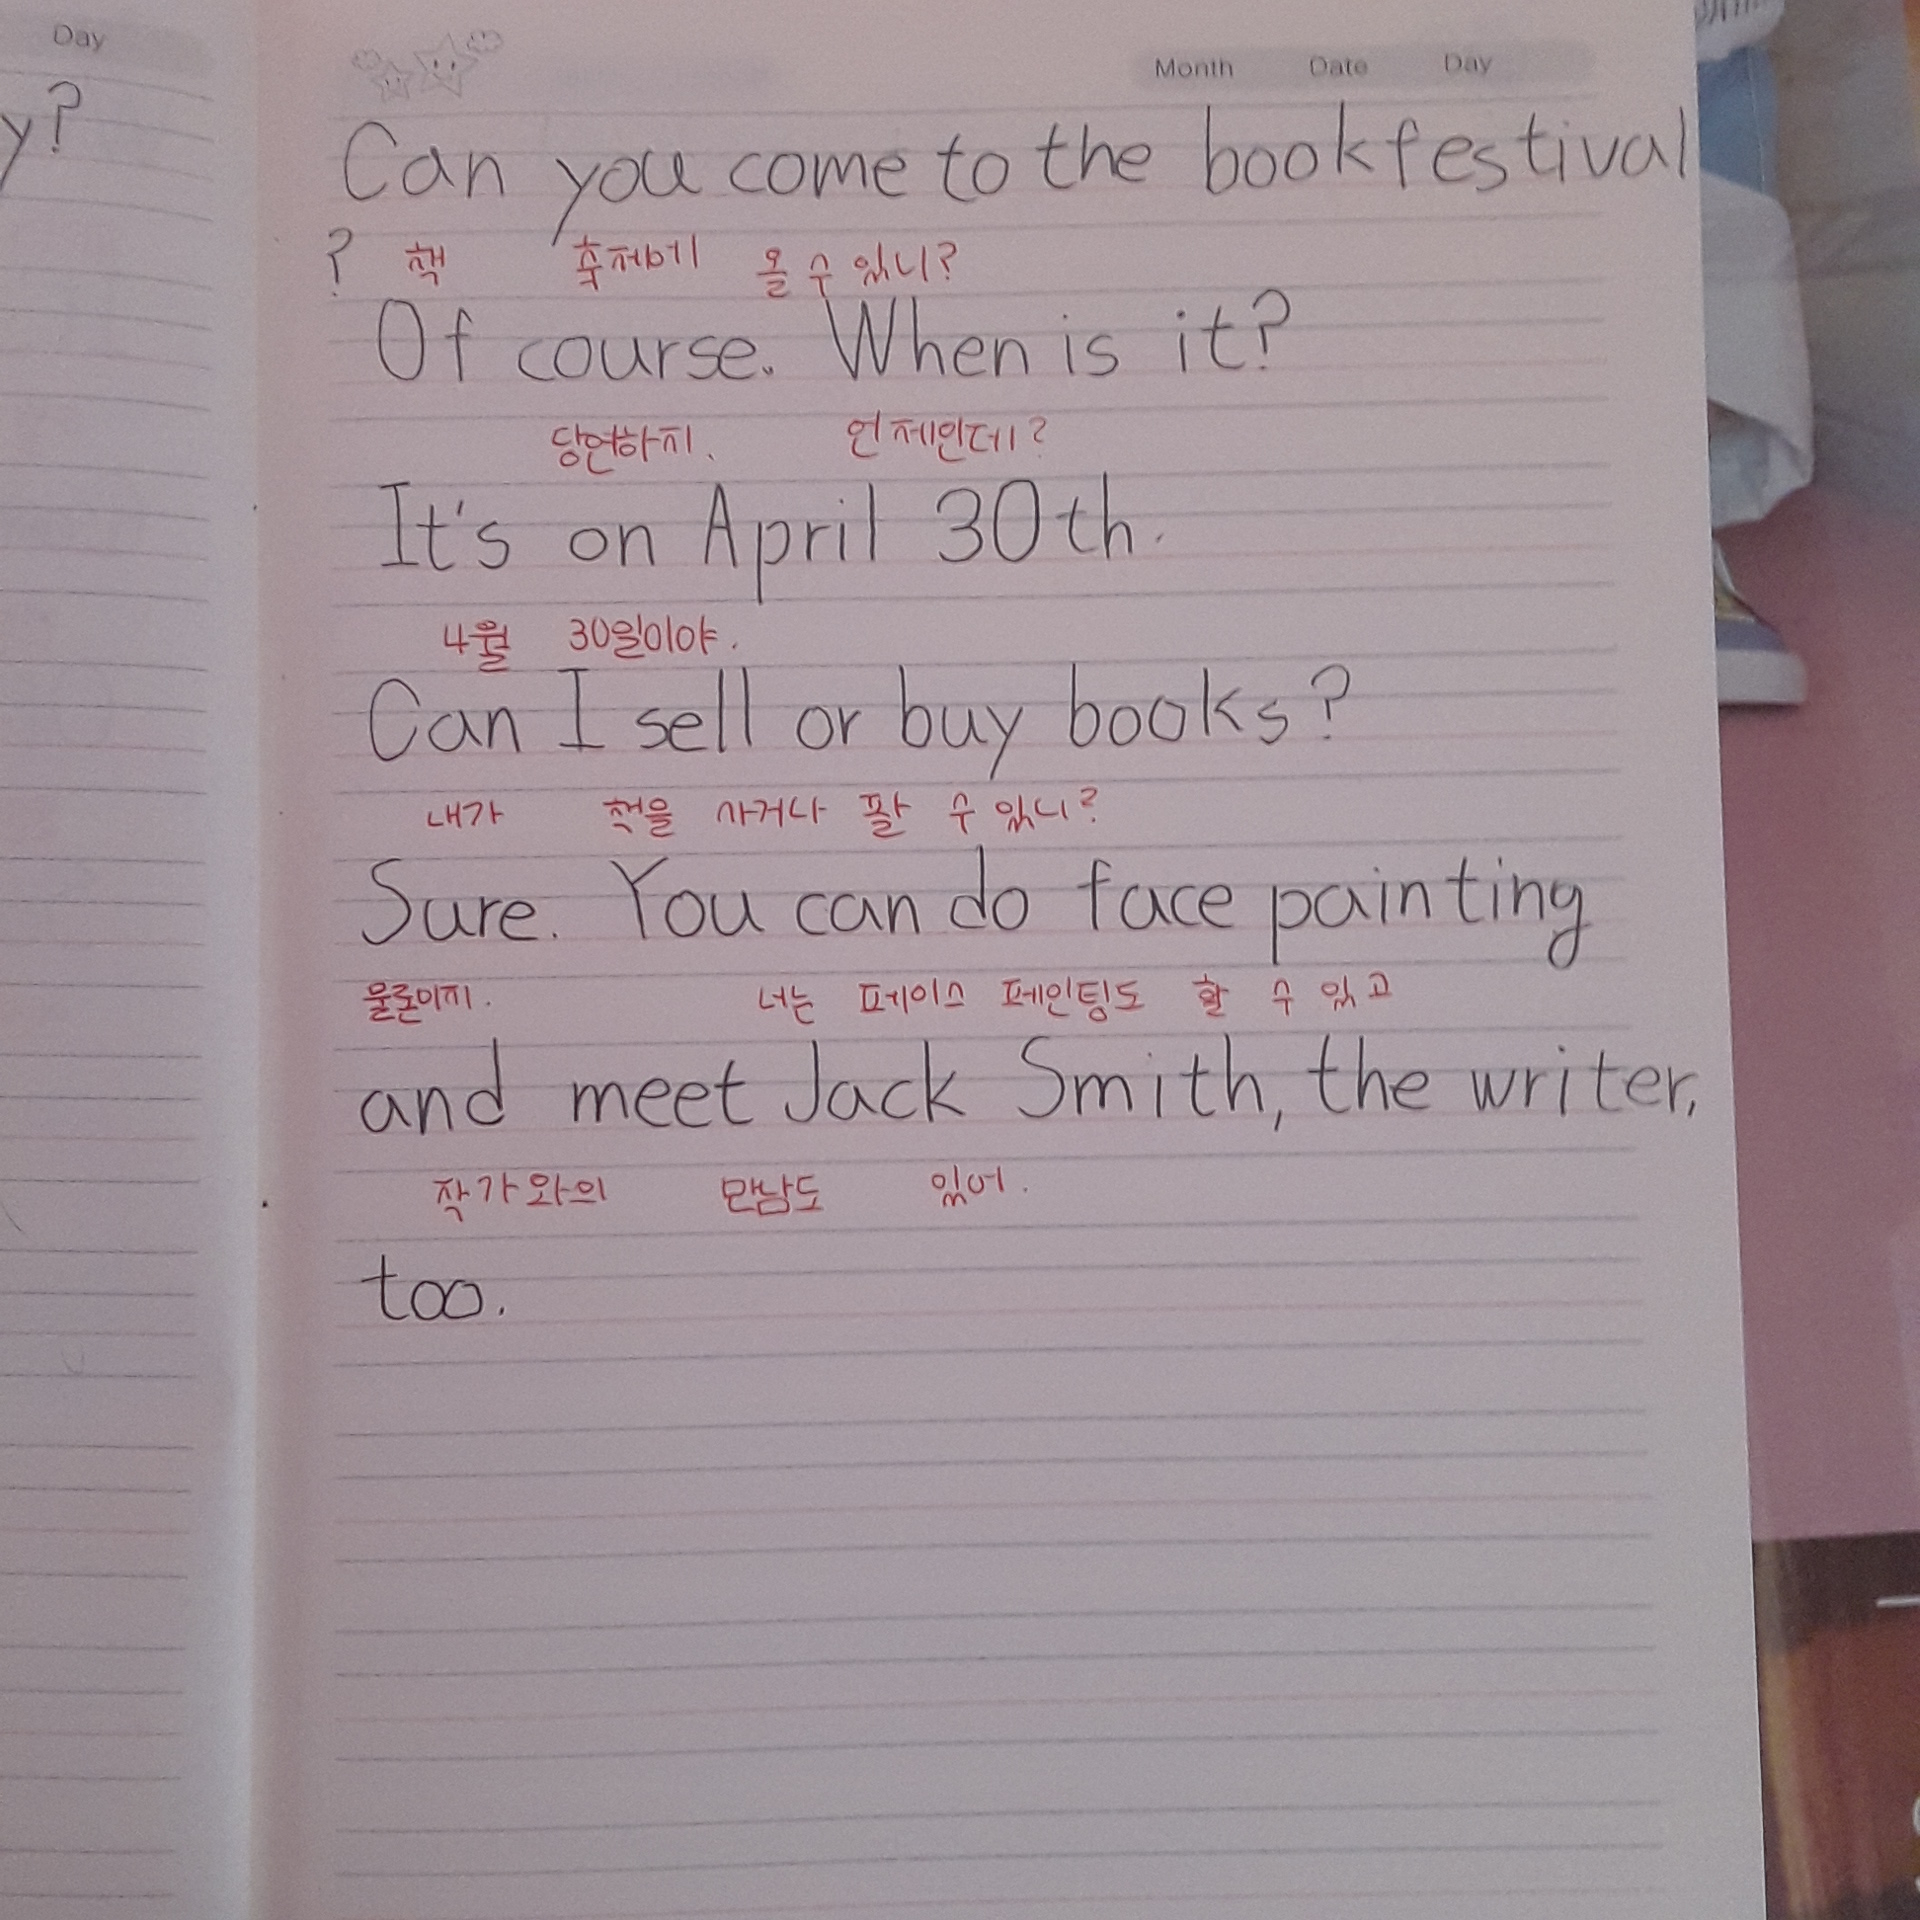 Day
y?
Month Date Day
Can you come to the book festival
? 책 축제에 올 수 있니?
Of course. When is it?
당연하지. 언제인데?
It's on April 30th.
4월 30일이야.
Can I sell or buy books?
내가 책을 사거나 팔 수 있니?
Sure. You can do face painting
물론이지. 너는 페이스 페인팅도 할 수 있고
and meet Jack Smith, the writer,
작가와의 만남도 있어.
too.